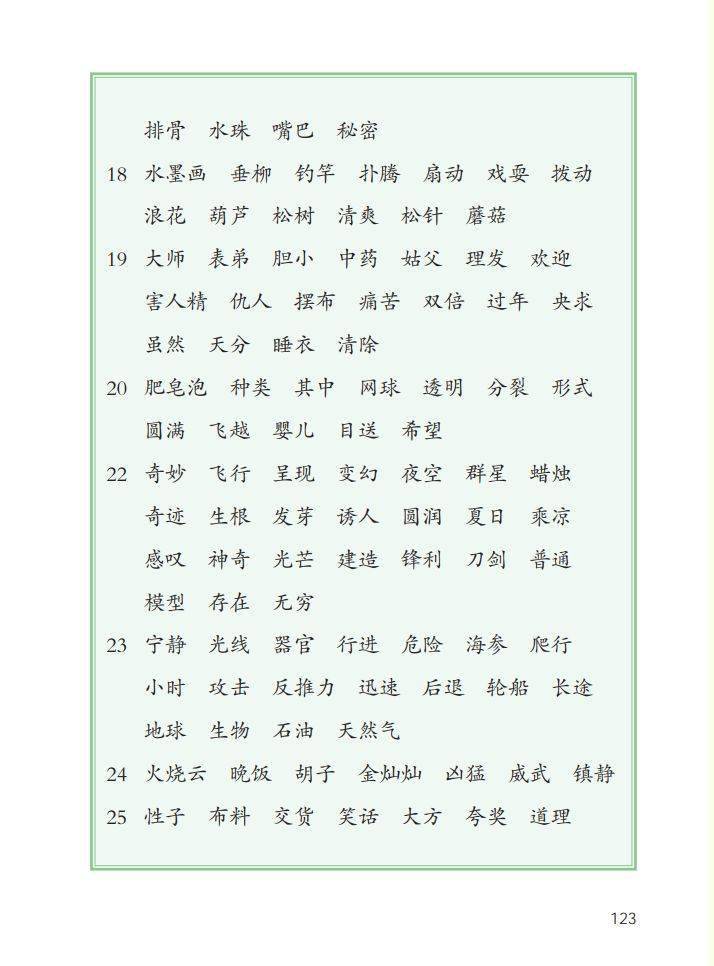 排骨 水珠 嘴巴 秘密
18 水墨画 垂柳 钓竿 扑腾 扇动 戏耍 拨动
浪花 葫芦 松树 清爽 松针 蘑菇
19 大师 表弟 胆小 中药 姑父 理发 欢迎
害人精 仇人 摆布 痛苦 双倍 过年 央求
虽然 天分 睡衣 清除
20 肥皂泡 种类 其中 网球 透明 分裂 形式
圆满 飞越 婴儿 目送 希望
22 奇妙 飞行 呈现 变幻 夜空 群星 蜡烛
奇迹 生根 发芽 诱人 圆润 夏日 乘凉
感叹 神奇 光芒 建造 锋利 刀剑 普通
模型 存在 无穷
23 宁静 光线 器官 行进 危险 海参 爬行
小时 攻击 反推力 迅速 后退 轮船 长途
地球 生物 石油 天然气
24 火烧云 晚饭 胡子 金灿灿 凶猛 威武 镇静
25 性子 布料 交货 笑话 大方 夸奖 道理
123